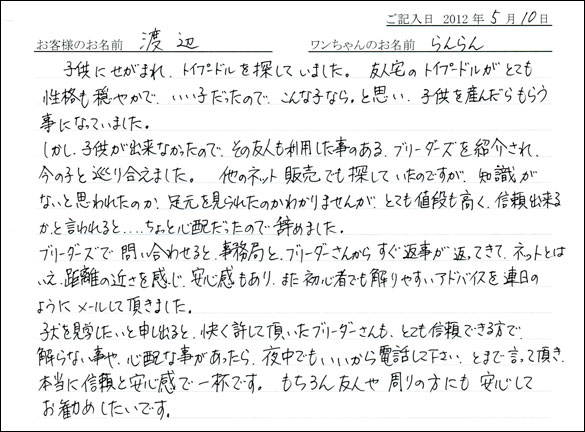 ご記入日 2012年 5月 10日
お客様のお名前 渡辺 ワンちゃんのお名前 らんらん
子供にせがまれ、トイプードルを探していました。 友人宅のトイプードルがとても
性格も穏やかで、いい子だったので、こんな子なら。と思い、子供を産んだらもらう
事になっていました。
しかし、子供が出来なかったので、その友人も利用した事のある、ブリーダーズを紹介され、
今の子と巡り合えました。 他のネット販売でも探していたのですが、知識が
ないと思われたのか、足元を見られたのかわかりませんが、とても値段も高く、信頼出来る
かと言われると....ちょっと心配だったので辞めました。
ブリーダーズで問い合わせると、事務局と、ブリーダーさんからすぐ返事が返ってきて、ネットとは
いえ、距離の近さを感じ、安心感もあり、また初心者でも解りやすいアドバイスを連日の
ようにメールして頂きました。
子犬を見学したいと申し出ると、快く許して頂いたブリーダーさんも、とても信頼できる方で、
解らない事や、心配な事があったら、夜中でもいいから電話して下さい、とまで言って頂き、
本当に信頼と安心感で一杯です。 もちろん友人や周りの方にも安心して
お勧めしたいです。